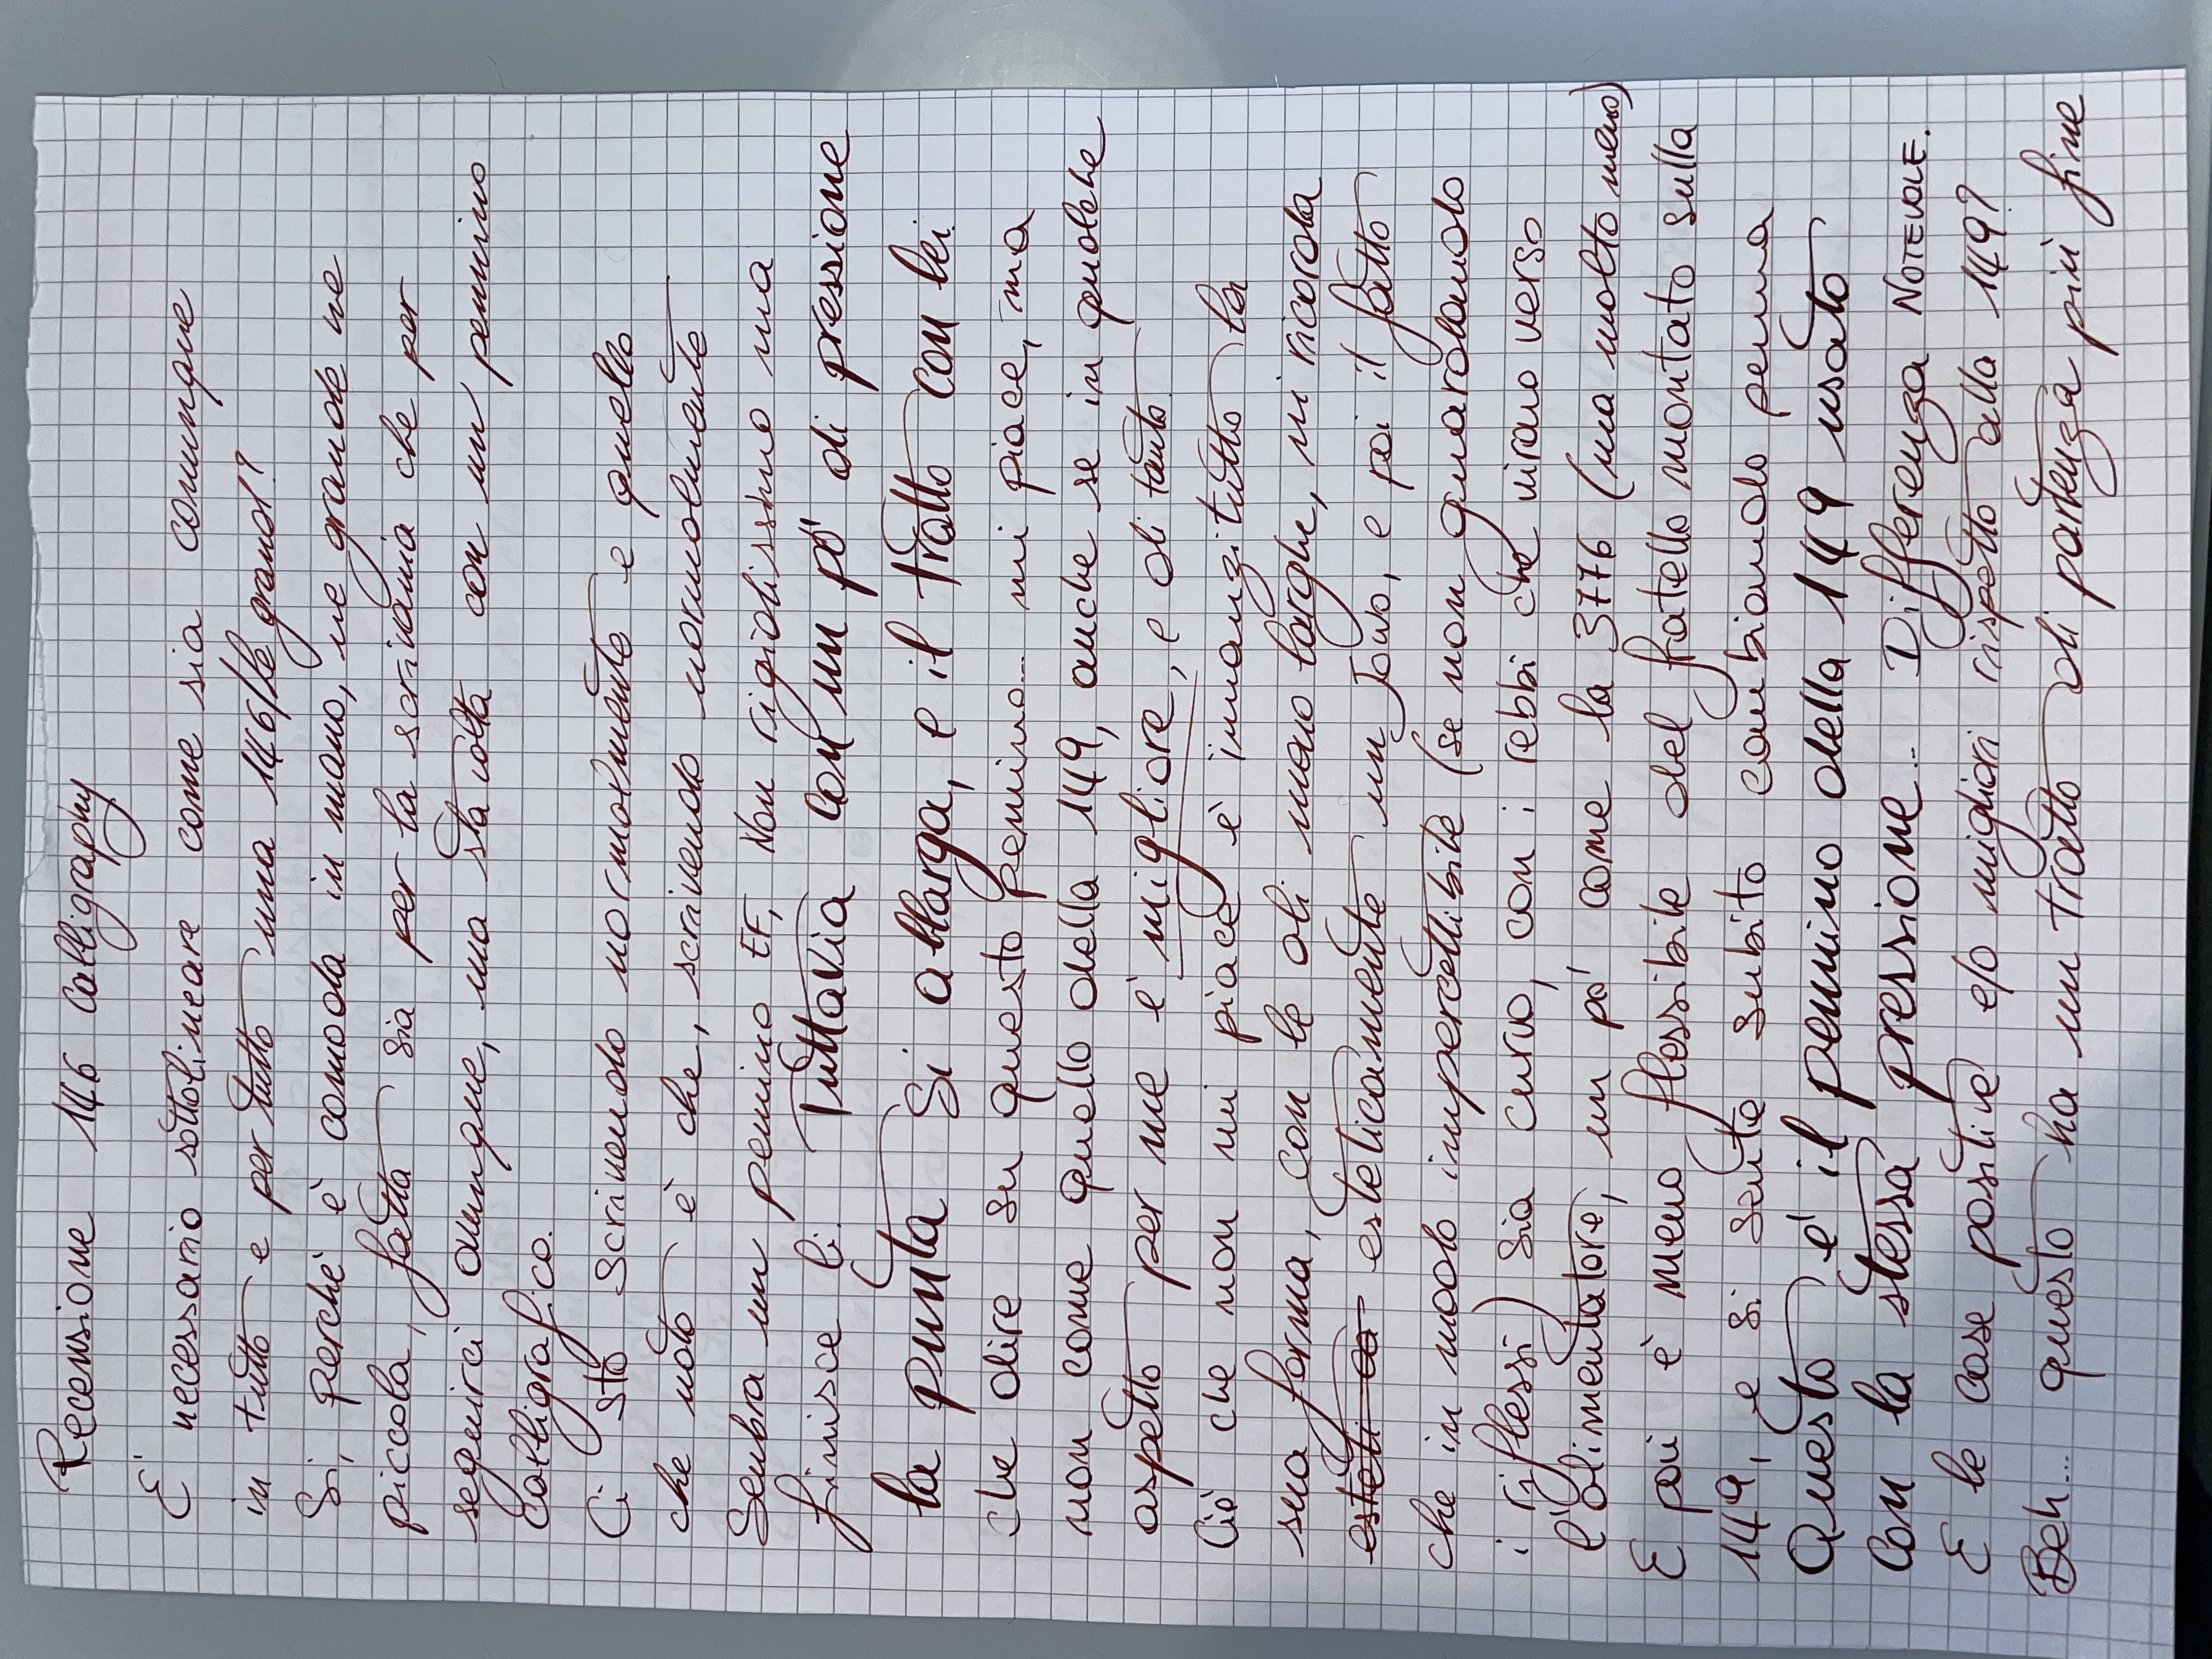 Recensione 146 Calligraphy
E' necessario sottolineare come sia comunque
in tutto e per tutto una 146/le grand?
Si, perchè è comoda in mano, ne grande ne
piccola, fatta sia per la scrivania che per
seguirci ovunque, ma sta volta con un pennino
calligrafico.
Ci sto scrivendo normalmente e quello
che noto è che, scrivendo normalmente
sembra un pennino EF, Non rigidissimo ma
finisce li. Tuttavia con un pò di pressione
la punta si allarga, e il tratto con lei.
Che dire su questo pennino... mi piace, ma
non come quello della 149, anche se in qualche
aspetto per me e' migliore, e di tanto.
Ciò che non mi piace è innanzitutto la
sua forma, con le ali meno larghe, mi ricorda
esteti ca esteticamente un Jowo, e poi il fatto
che in modo impercettibile (se non guardando
i riflessi) sia curvo, con i rebbi che virano verso
l'alimentatore, un po' come la 3776 (ma molto meno)
E poi è meno flessibile del fratello montato sulla
149, e si sente subito cambiando penna
Questo e' il pennino della 149 usato
con la stessa pressione... Differenza NOTEVOLE.
E le cose positive e/o migliori rispetto alla 149?
Beh... questo ha un tratto di partenza più fine